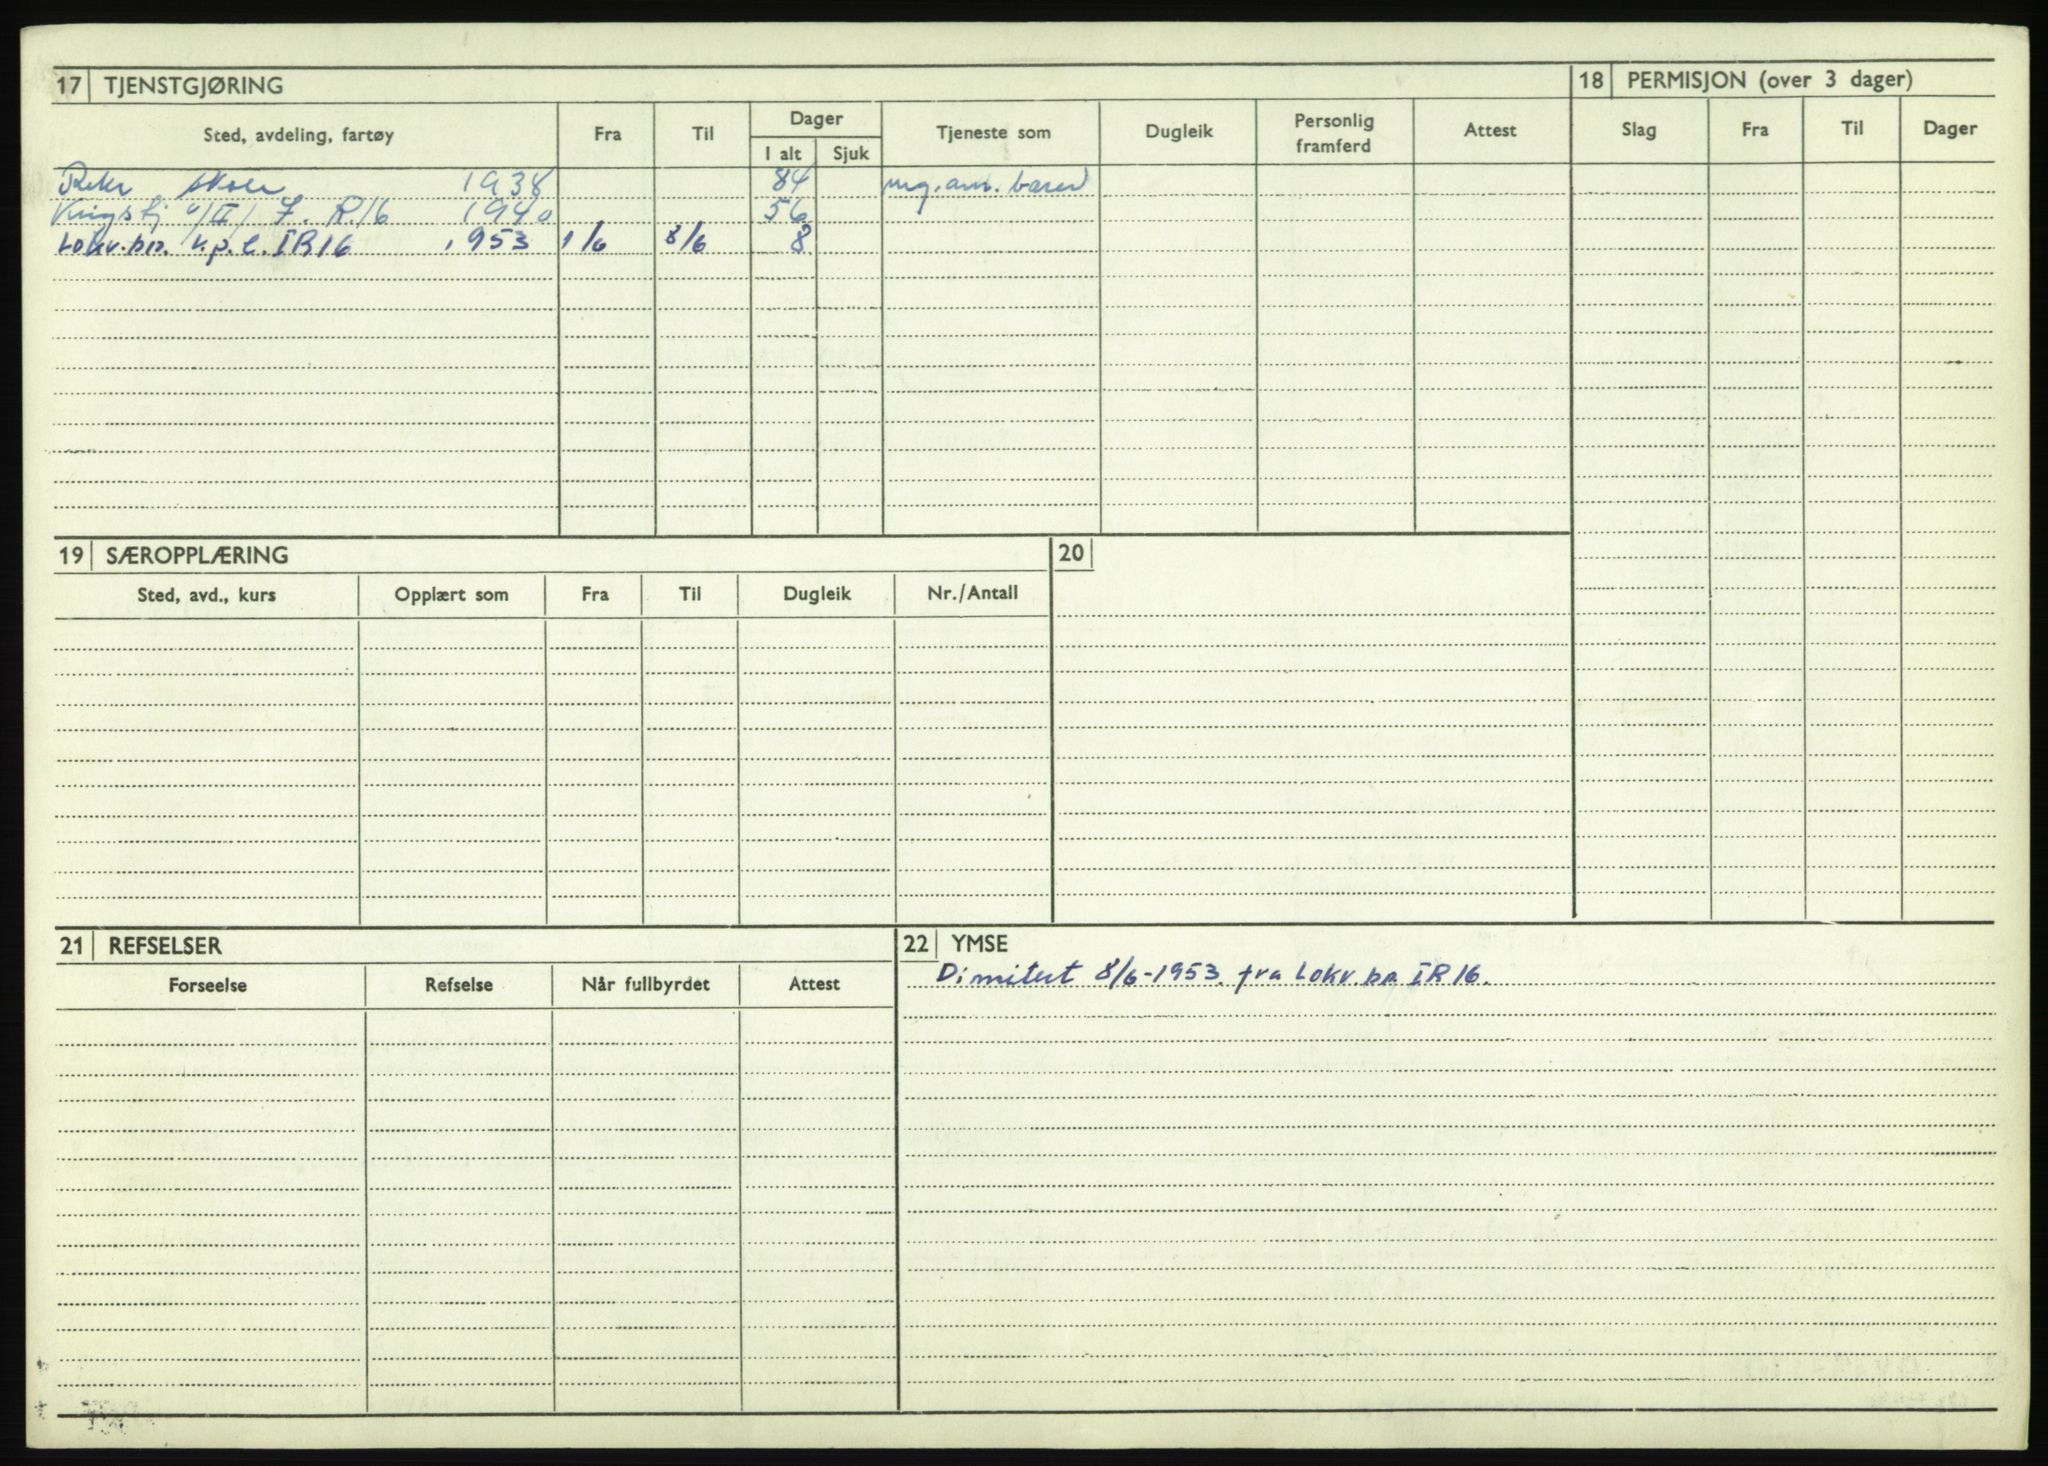 17 TJENSTGJØRING
Sted, avdeling, fartøy Fra Til Dager Tjeneste som Dugleik Personlig framferd Attest
I alt Sjuk
Rekr skole 1938 84 mg. am. bærer
II/ I. R. 16 1940 56
Lokv.bn. k.p.l. IR16 1953 1/6 8/6 8
18 PERMISJON (over 3 dager)
Slag Fra Til Dager
19 SÆROPPLÆRING
Sted, avd., kurs Opplært som Fra Til Dugleik Nr./Antall
20
21 REFSELSER
Forseelse Refselse Når fullbyrdet Attest
22 YMSE
Dimitert 8/6-1953 fra Lokv.bn IR16.